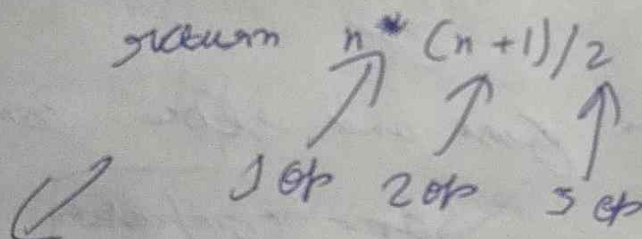 return n * (n + 1) / 2
1 op 2 op 3 op